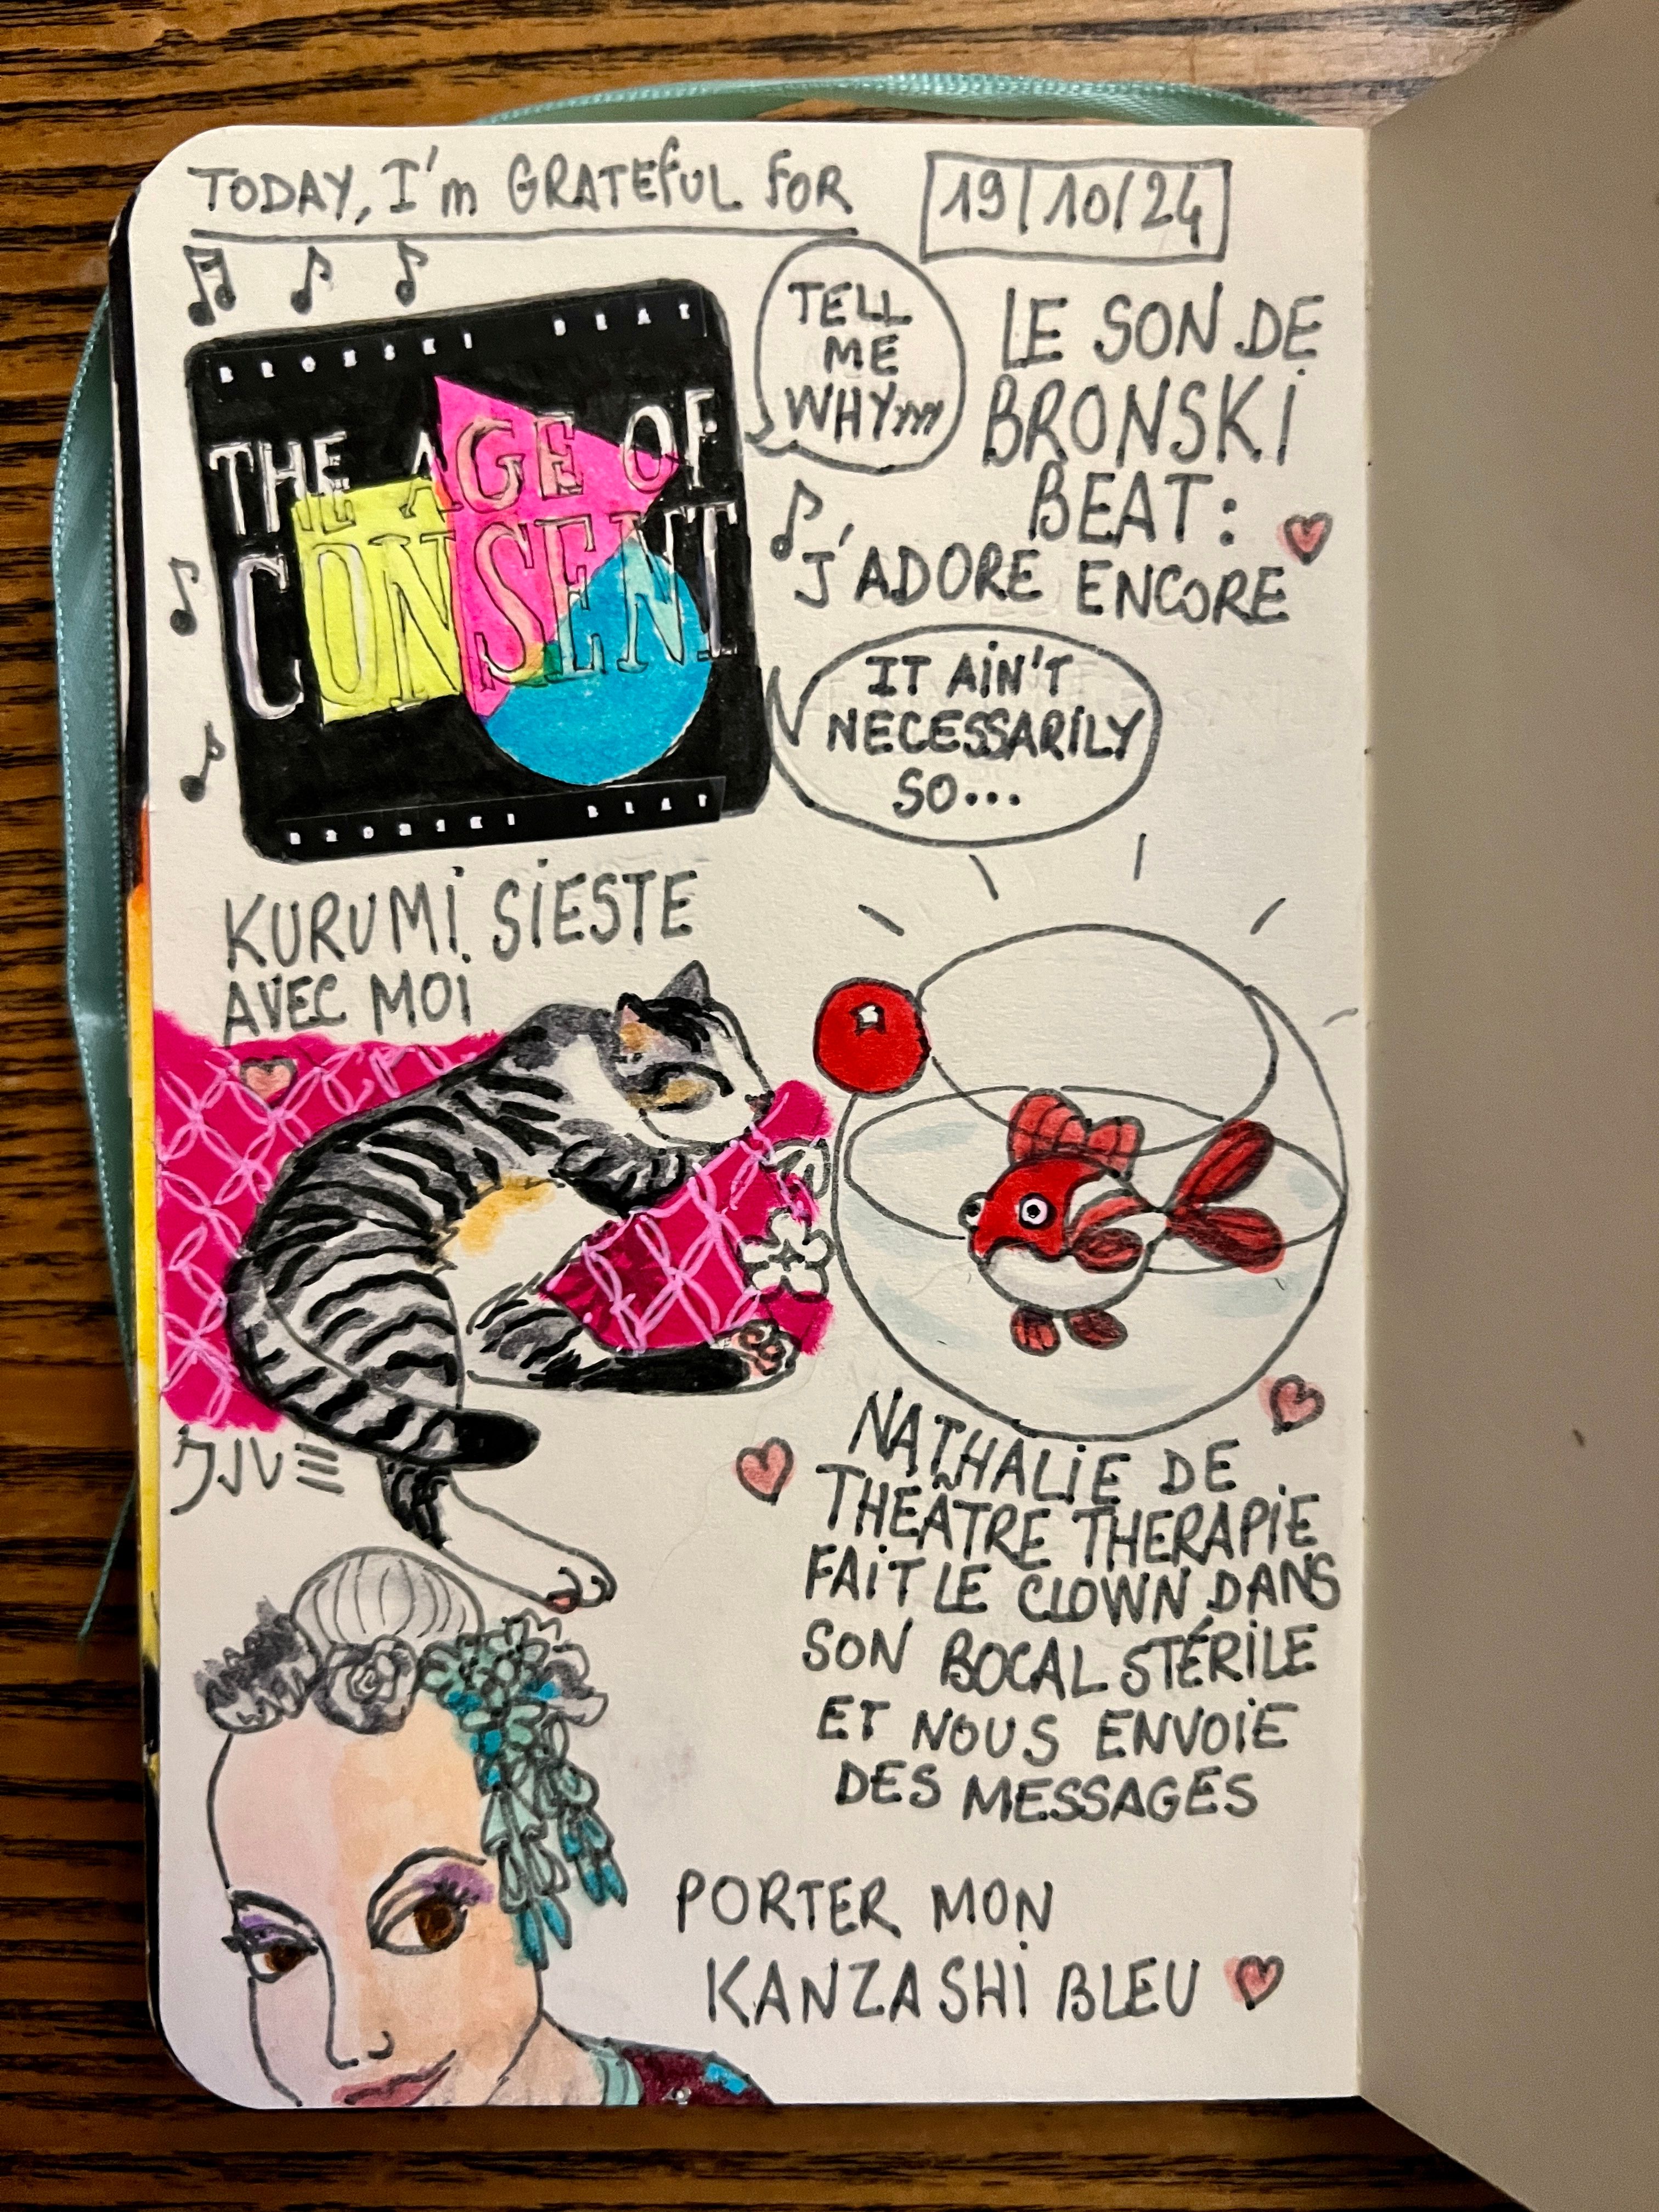 TODAY, I'm GRATEFUL FOR
19/10/24
BRONSKI BEAT
THE AGE OF
CONSENT
BRONSKI BEAT
TELL
ME
WHYYYY
LE SON DE
BRONSKI
BEAT :
J'ADORE ENCORE
IT AIN'T
NECESSARILY
SO...
KURUMI SIESTE
AVEC MOI
クルミ
NATHALIE DE
THEÂTRE THERAPIE
FAIT LE CLOWN DANS
SON BOCAL STÉRILE
ET NOUS ENVOIE
DES MESSAGES
PORTER MON
KANZASHI BLEU